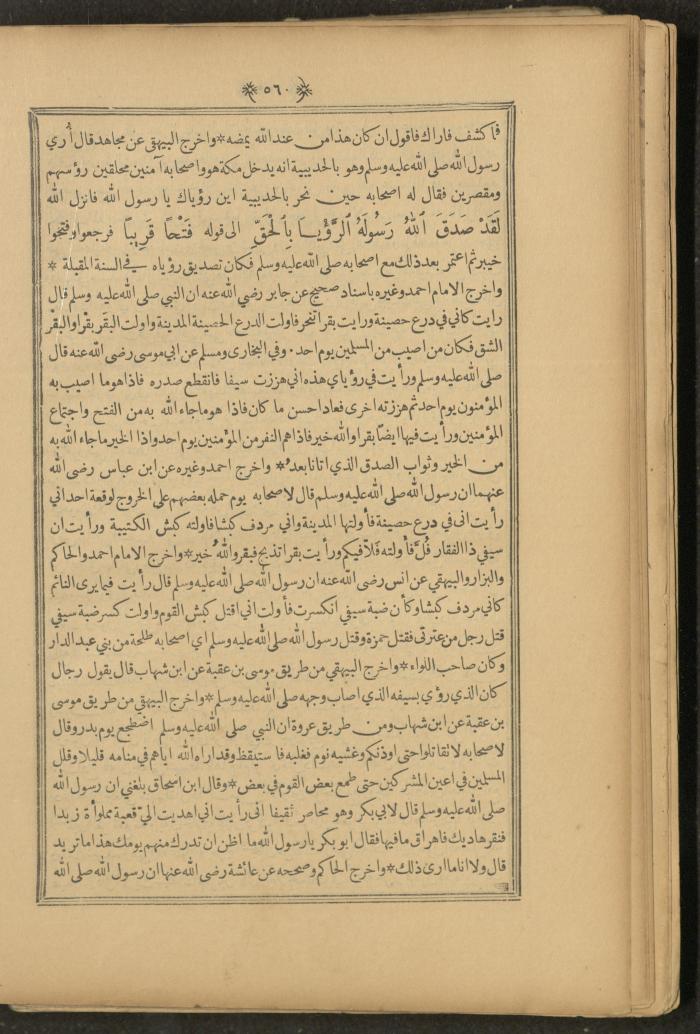 ٥٦٠
فأكشف فاراك فاقول ان كان هذا من عند الله يمضه * واخرج البيهقي عن مجاهد قال أُري
رسول الله صلى الله عليه وسلم وهو بالحديبية انه يدخل مكة هو واصحابه آمنين محلقين رؤسهم
ومقصرين فقال له اصحابه حين نحر بالحديبية اين رؤياك يا رسول الله فانزل الله
لَقَدْ صَدَقَ ٱللهُ رَسُولَهُ ٱلرُّؤْيَا بِٱلْحَقِّ الى قوله فَتْحًا قَرِيبًا فرجعوا وفتحوا
خيبر ثم اعتمر بعد ذلك مع اصحابه صلى الله عليه وسلم فكان تصديق رؤياه في السنة المقبلة *
واخرج الامام احمد وغيره باسناد صحيح عن جابر رضي الله عنه ان النبي صلى الله عليه وسلم قال
رايت كاني في درع حصينة ورايت بقرا تنحر فاولت الدرع الحصينة المدينة واولت البقَر بقْرا والبقْر
الشق فكان من اصيب من المسلمين يوم احد . وفي البخاري ومسلم عن ابي موسى رضى الله عنه قال
صلى الله عليه وسلم ورأيت في رؤياي هذه اني هززت سيفا فانقطع صدره فاذا هو ما اصيب به
المؤمنون يوم احد ثم هززته اخرى فعاد احسن ما كان فاذا هو ما جاء الله به من الفتح واجتماع
المؤمنين ورأيت فيها ايضا بقرا والله خير فاذا هم النفر من المؤمنين يوم احد واذا الخير ما جاء الله به
من الخير وثواب الصدق الذي اتانا بعد * واخرج احمد وغيره عن ابن عباس رضى الله
عنهما ان رسول الله صلى الله عليه وسلم قال لاصحابه يوم حمله بعضهم على الخروج لوقعة احد اني
رأيت انى في درع حصينة فأولتها المدينة واني مردف كبشا فاولته كبش الكتيبة ورأيت ان
سيفي ذا الفقار فُلَّ فأولته فَلًّا فيكم ورأيت بقرا تذبح فبقر والله خير * واخرج الامام احمد والحاكم
والبزار والبيهقي عن انس رضى الله عنه ان رسول الله صلى الله عليه وسلم قال رأيت فيما يرى النائم
كاني مردف كبشا وكأن ضبة سيفي انكسرت فأولت اني اقتل كبش القوم واولت كسر ضبة سيفي
قتل رجل من عترتى فقتل حمزة وقتل رسول الله صلى الله عليه وسلم اي اصحابه طلحة من بني عبد الدار
وكان صاحب اللواء * واخرج البيهقي من طريق موسى بن عقبة عن ابن شهاب قال يقول رجال
كان الذي رؤي بسيفه الذي اصاب وجهه صلى الله عليه وسلم * واخرج البيهقي من طريق موسى
بن عقبة عن ابن شهاب ومن طريق عروة ان النبي صلى الله عليه وسلم اضطجع يوم بدر وقال
لاصحابه لا تقاتلوا حتى اوذنكم وغشيه نوم فغلبه فاستيقظ وقد اراه الله اياهم في منامه قليلا وقلل
المسلمين في اعين المشركين حتى طمع بعض القوم في بعض * وقال ابن اسحاق بلغني ان رسول الله
صلى الله عليه وسلم قال لابي بكر وهو محاصر ثقيفا انى رأيت اني اهديت اليّ قعبة مملوأة زبدا
فنقرها ديك فاهراق ما فيها فقال ابو بكر يا رسول الله ما اظن ان تدرك منهم يومك هذا ما تريد
قال ولا انا ما ارى ذلك * واخرج الحاكم وصححه عن عائشة رضى الله عنها ان رسول الله صلى الله